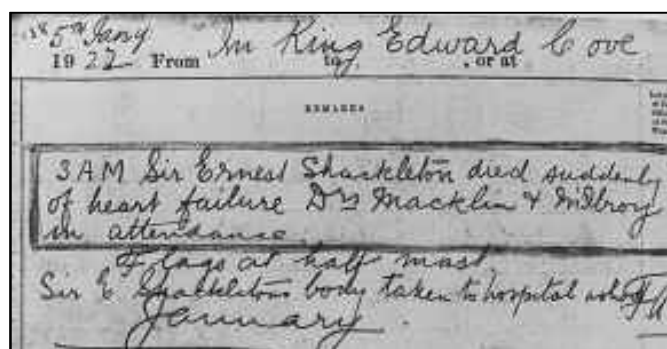 5th Jany In King Edward Cove
1922 From to , or at
REMARKS
3 AM Sir Ernest Shackleton died suddenly
of heart failure Drs Macklin & McIlroy
in attendance
Flags at half mast
Sir E Shackletons body taken to hospital
January